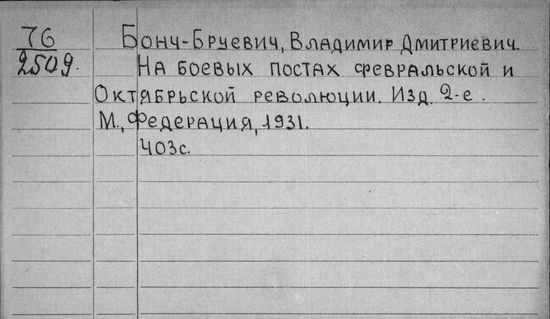 76
2509.
Бонч-Бруевич, Владимир Дмитриевич.
На боевых постах февральской и
Октябрьской революции. Изд. 2-е.
М., Федерация, 1931.
403с.